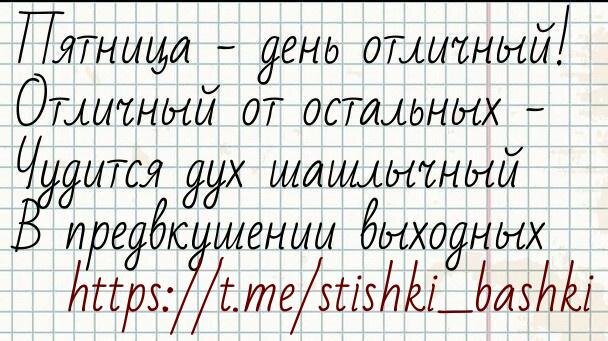 Пятница - день отличный!
Отличный от остальных -
Чудится дух шашлычный
В предвкушении выходных
https://t.me/stishki_bashki